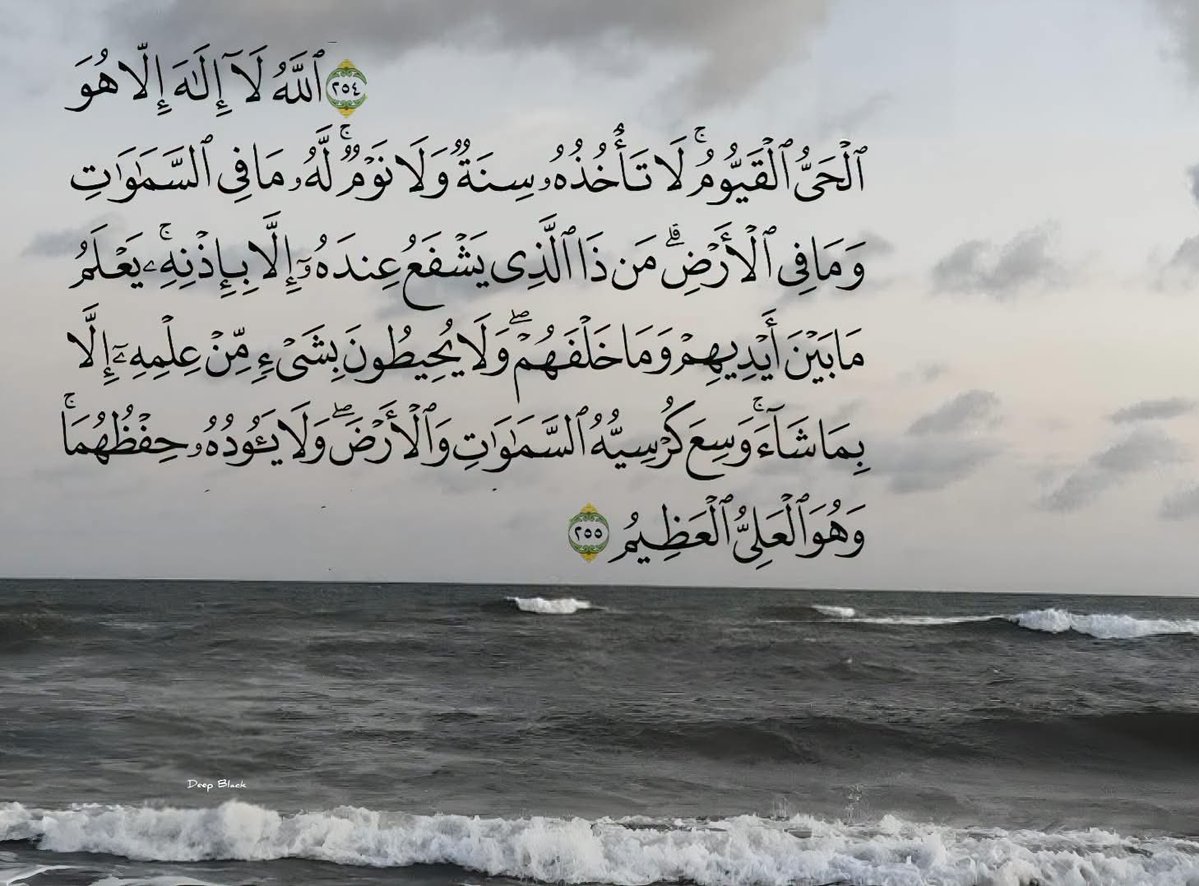 ٢٥٤ ٱللَّهُ لَآ إِلَـٰهَ إِلَّا هُوَ
ٱلْحَىُّ ٱلْقَيُّومُ ۚ لَا تَأْخُذُهُۥ سِنَةٌ وَلَا نَوْمٌ ۚ لَّهُۥ مَا فِى ٱلسَّمَـٰوَٰتِ
وَمَا فِى ٱلْأَرْضِ ۗ مَن ذَا ٱلَّذِى يَشْفَعُ عِندَهُۥٓ إِلَّا بِإِذْنِهِۦ ۚ يَعْلَمُ
مَا بَيْنَ أَيْدِيهِمْ وَمَا خَلْفَهُمْ ۖ وَلَا يُحِيطُونَ بِشَىْءٍ مِّنْ عِلْمِهِۦٓ إِلَّا
بِمَا شَآءَ ۚ وَسِعَ كُرْسِيُّهُ ٱلسَّمَـٰوَٰتِ وَٱلْأَرْضَ ۖ وَلَا يَـُٔودُهُۥ حِفْظُهُمَا ۚ
وَهُوَ ٱلْعَلِىُّ ٱلْعَظِيمُ ٢٥٥
Deep Black